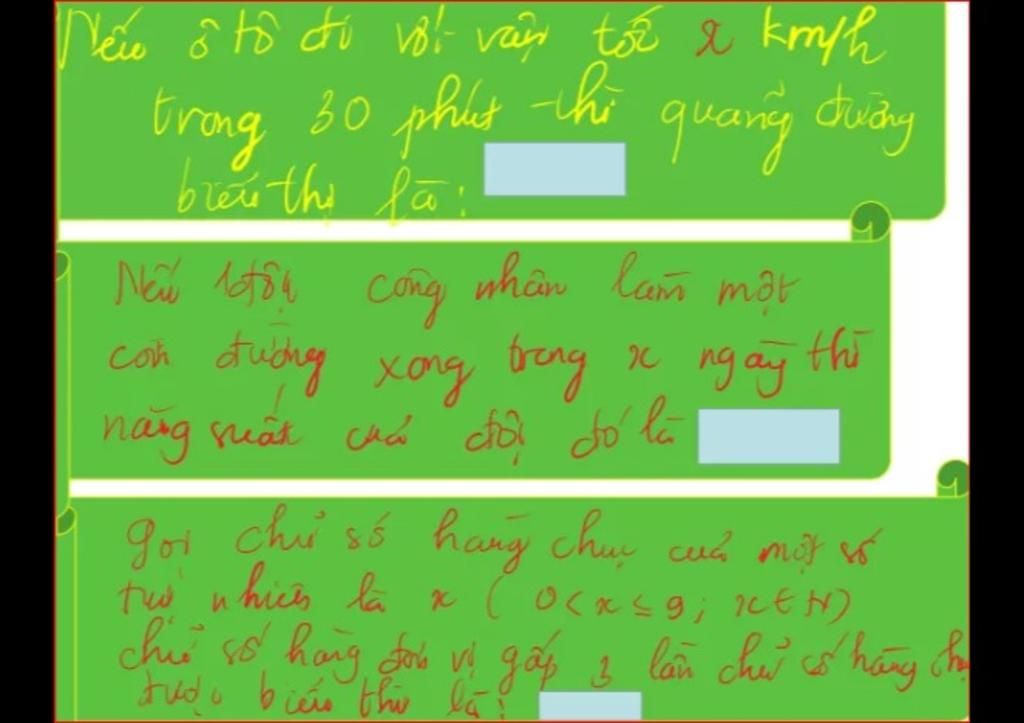 Nếu ô tô đi với vận tốc x km/h
trong 30 phút thì quãng đường
biểu thị là:
Nếu 1 đội công nhân làm một
con đường xong trong x ngày thì
năng suất của đội đó là
Gọi chữ số hàng chục của một số
tự nhiên là x ( 0 < x ≤ 9 ; x ∈ N)
chữ số hàng đơn vị gấp 3 lần chữ số hàng
được biểu thị là: